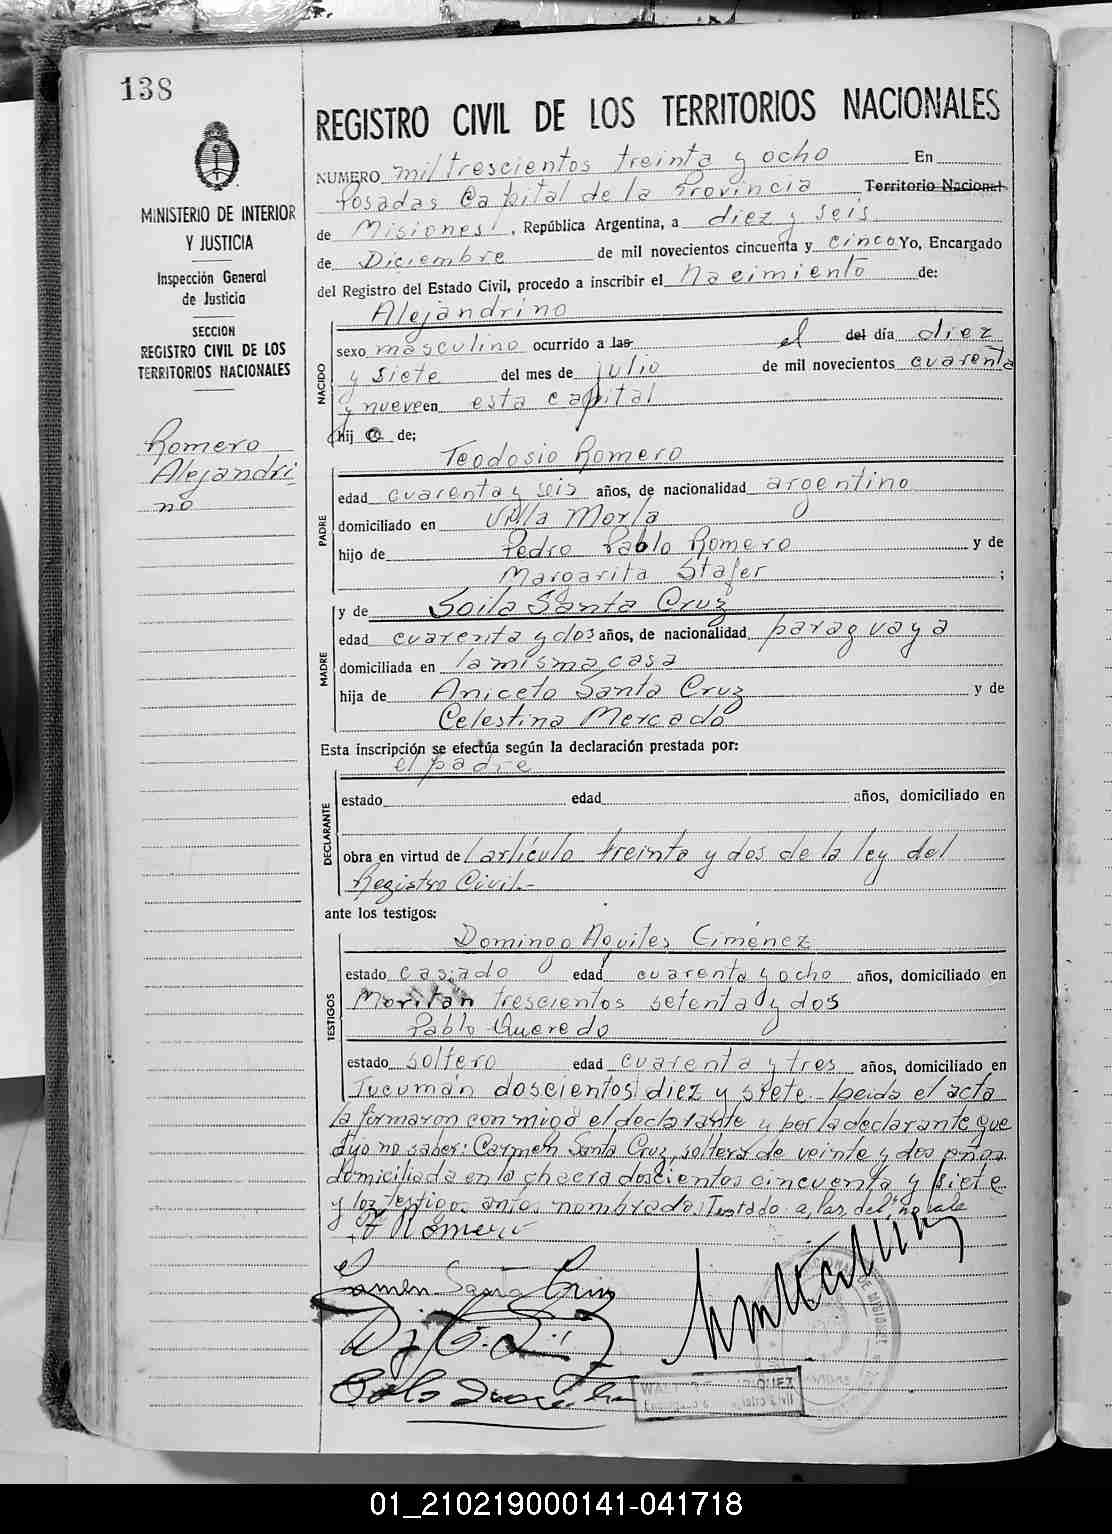 138
REGISTRO CIVIL DE LOS TERRITORIOS NACIONALES
MINISTERIO DE INTERIOR
Y JUSTICIA
Inspección General
de Justicia
SECCION
REGISTRO CIVIL DE LOS
TERRITORIOS NACIONALES
Romero
Alejandri
no
NUMERO mil trescientos treinta y ocho En
Posadas Capital de la Provincia Territorio Nacional
de Misiones, República Argentina, a diez y seis
de Diciembre de mil novecientos cincuenta y cinco Yo, Encargado
del Registro del Estado Civil, procedo a inscribir el Nacimiento de:
NACIDO
Alejandrino
sexo masculino ocurrido a las el del día diez
y siete del mes de julio de mil novecientos cuarenta
y nueve en esta capital
hijo de;
PADRE
Teodosio Romero
edad cuarenta y seis años, de nacionalidad argentino
domiciliado en Villa Morla
hijo de Pedro Pablo Romero y de
Margarita Stafer ;
MADRE
y de Soila Santa Cruz
edad cuarenta y dos años, de nacionalidad paraguaya
domiciliada en la misma casa
hija de Aniceto Santa Cruz y de
Celestina Mercado
Esta inscripción se efectúa según la declaración prestada por:
el padre
DECLARANTE
estado edad años, domiciliado en
obra en virtud del artículo treinta y dos de la ley del
Registro Civil.-
ante los testigos:
TESTIGOS
Domingo Aquiles Giménez
estado casado edad cuarenta y ocho años, domiciliado en
Moritan trescientos setenta y dos
Pablo Queredo
estado soltero edad cuarenta y tres años, domiciliado en
Tucumán doscientos diez y siete. Leida el acta
la firmaron con migo el declarante y por la declarante que
dijo no saber: Carmen Santa Cruz, soltera de veinte y dos años
domiciliada en la chacra doscientos cincuenta y siete
y los testigos antes nombrados. Testado: a, las, del, no vale
T Romero
Carmen Santa Cruz
01_210219000141-041718